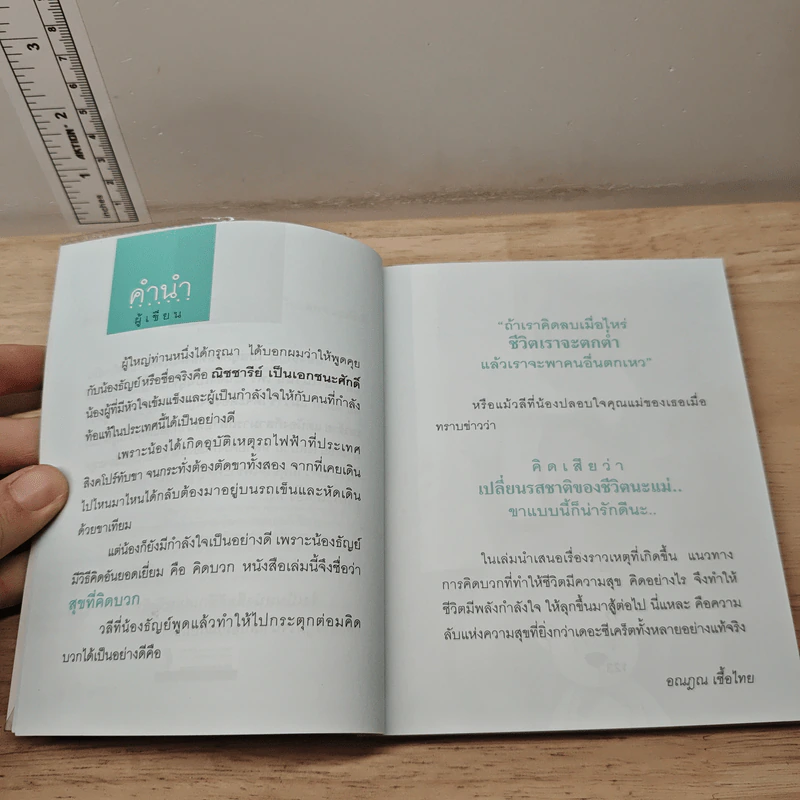 3
2
1
Inches
AKTION
8
7
6
5
4
3
2
1
คำนำ
ผู้เขียน
ผู้ใหญ่ท่านหนึ่งได้กรุณา ได้บอกผมว่าให้พูดคุย
กับน้องธัญย์หรือชื่อจริงคือ ณิชชารีย์ เป็นเอกชนะศักดิ์
น้องผู้ที่มีหัวใจเข้มแข็งและผู้เป็นกำลังใจให้กับคนที่กำลัง
ท้อแท้ในประเทศนี้ได้เป็นอย่างดี
เพราะน้องได้เกิดอุบัติเหตุรถไฟฟ้าที่ประเทศ
สิงคโปร์ทับขา จนกระทั่งต้องตัดขาทั้งสอง จากที่เคยเดิน
ไปไหนมาไหนได้กลับต้องมาอยู่บนรถเข็นและหัดเดิน
ด้วยขาเทียม
แต่น้องก็ยังมีกำลังใจเป็นอย่างดี เพราะน้องธัญย์
มีวิธีคิดอันยอดเยี่ยม คือ คิดบวก หนังสือเล่มนี้จึงชื่อว่า
สุขที่คิดบวก
วลีที่น้องธัญย์พูดแล้วทำให้ไปกระตุกต่อมคิด
บวกได้เป็นอย่างดีคือ
"ถ้าเราคิดลบเมื่อไหร่
ชีวิตเราจะตกต่ำ
แล้วเราจะพาคนอื่นตกเหว"
หรือแม้วลีที่น้องปลอบใจคุณแม่ของเธอเมื่อ
ทราบข่าวว่า
คิดเสียว่า
เปลี่ยนรสชาติของชีวิตนะแม่..
ขาแบบนี้ก็น่ารักดีนะ..
ในเล่มนำเสนอเรื่องราวเหตุที่เกิดขึ้น แนวทาง
การคิดบวกที่ทำให้ชีวิตมีความสุข คิดอย่างไร จึงทำให้
ชีวิตมีพลังกำลังใจ ให้ลุกขึ้นมาสู้ต่อไป นี่แหละ คือความ
ลับแห่งความสุขที่ยิ่งกว่าเดอะซีเคร็ตทั้งหลายอย่างแท้จริง
อณฎณ เชื้อไทย